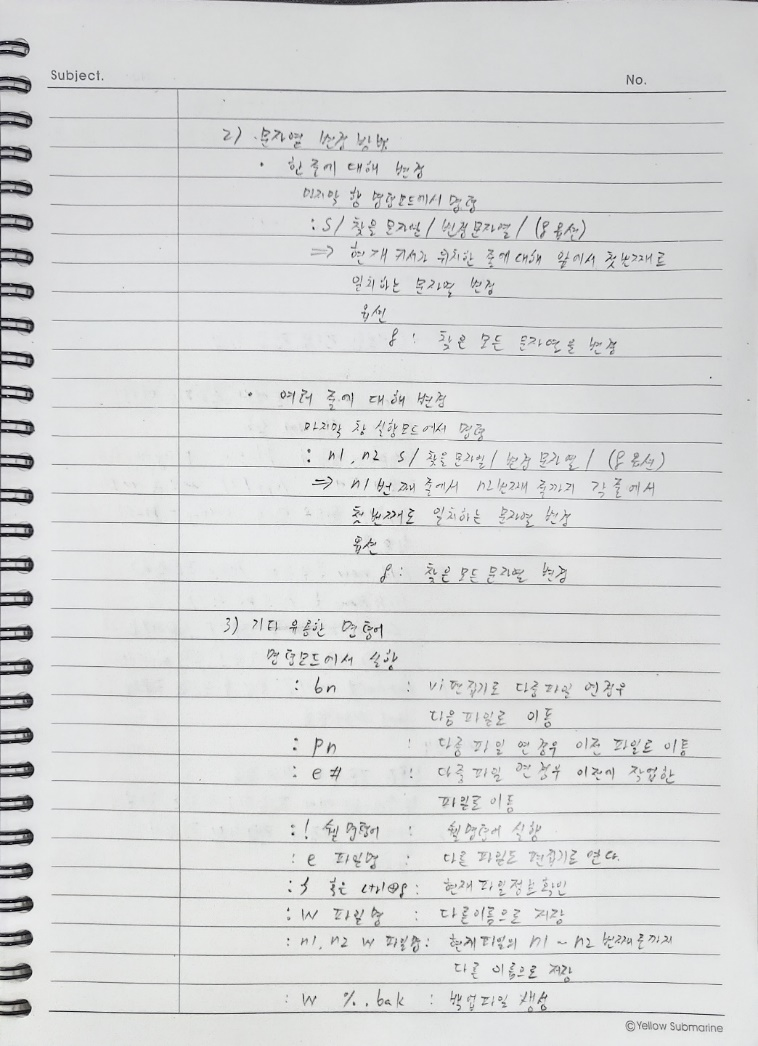 Subject.
No.
2) 문자열 변경 방법
· 한 줄에 대해 변경
마지막 행 명령모드에서 명령
: s/ 찾을 문자열 / 변경문자열 / (g 옵션)
⇒ 현재 커서가 위치한 줄에 대해 앞에서 첫번째로
일치하는 문자열 변경
옵션
g : 찾은 모든 문자열을 변경
· 여러 줄에 대해 변경
마지막 행 실행모드에서 명령
: n1, n2 s/ 찾을문자열/ 변경 문자열 / (g 옵션)
⇒ n1번째 줄에서 n2번째 줄까지 각 줄에서
첫번째로 일치하는 문자열 변경
옵션
g : 찾은 모든 문자열 변경
3) 기타 유용한 명령어
명령모드에서 실행
: bn : vi편집기로 다중파일 연경우
다음 파일로 이동
: pn : 다중 파일 연경우 이전 파일로 이동
: e# : 다중파일 연경우 이전에 작업한
파일로 이동
:! 쉘 명령어 : 쉘명령어 실행
: e 파일명 : 다른 파일도 편집기로 연다.
: f 혹은 ctrl⊕g : 현재파일정보확인
: w 파일명 : 다른이름으로 저장
: n1, n2 w 파일명 : 현재파일의 n1 ~ n2 번째로까지
다른 이름으로 저장
: w %..bak : 백업파일 생성
©Yellow Submarine